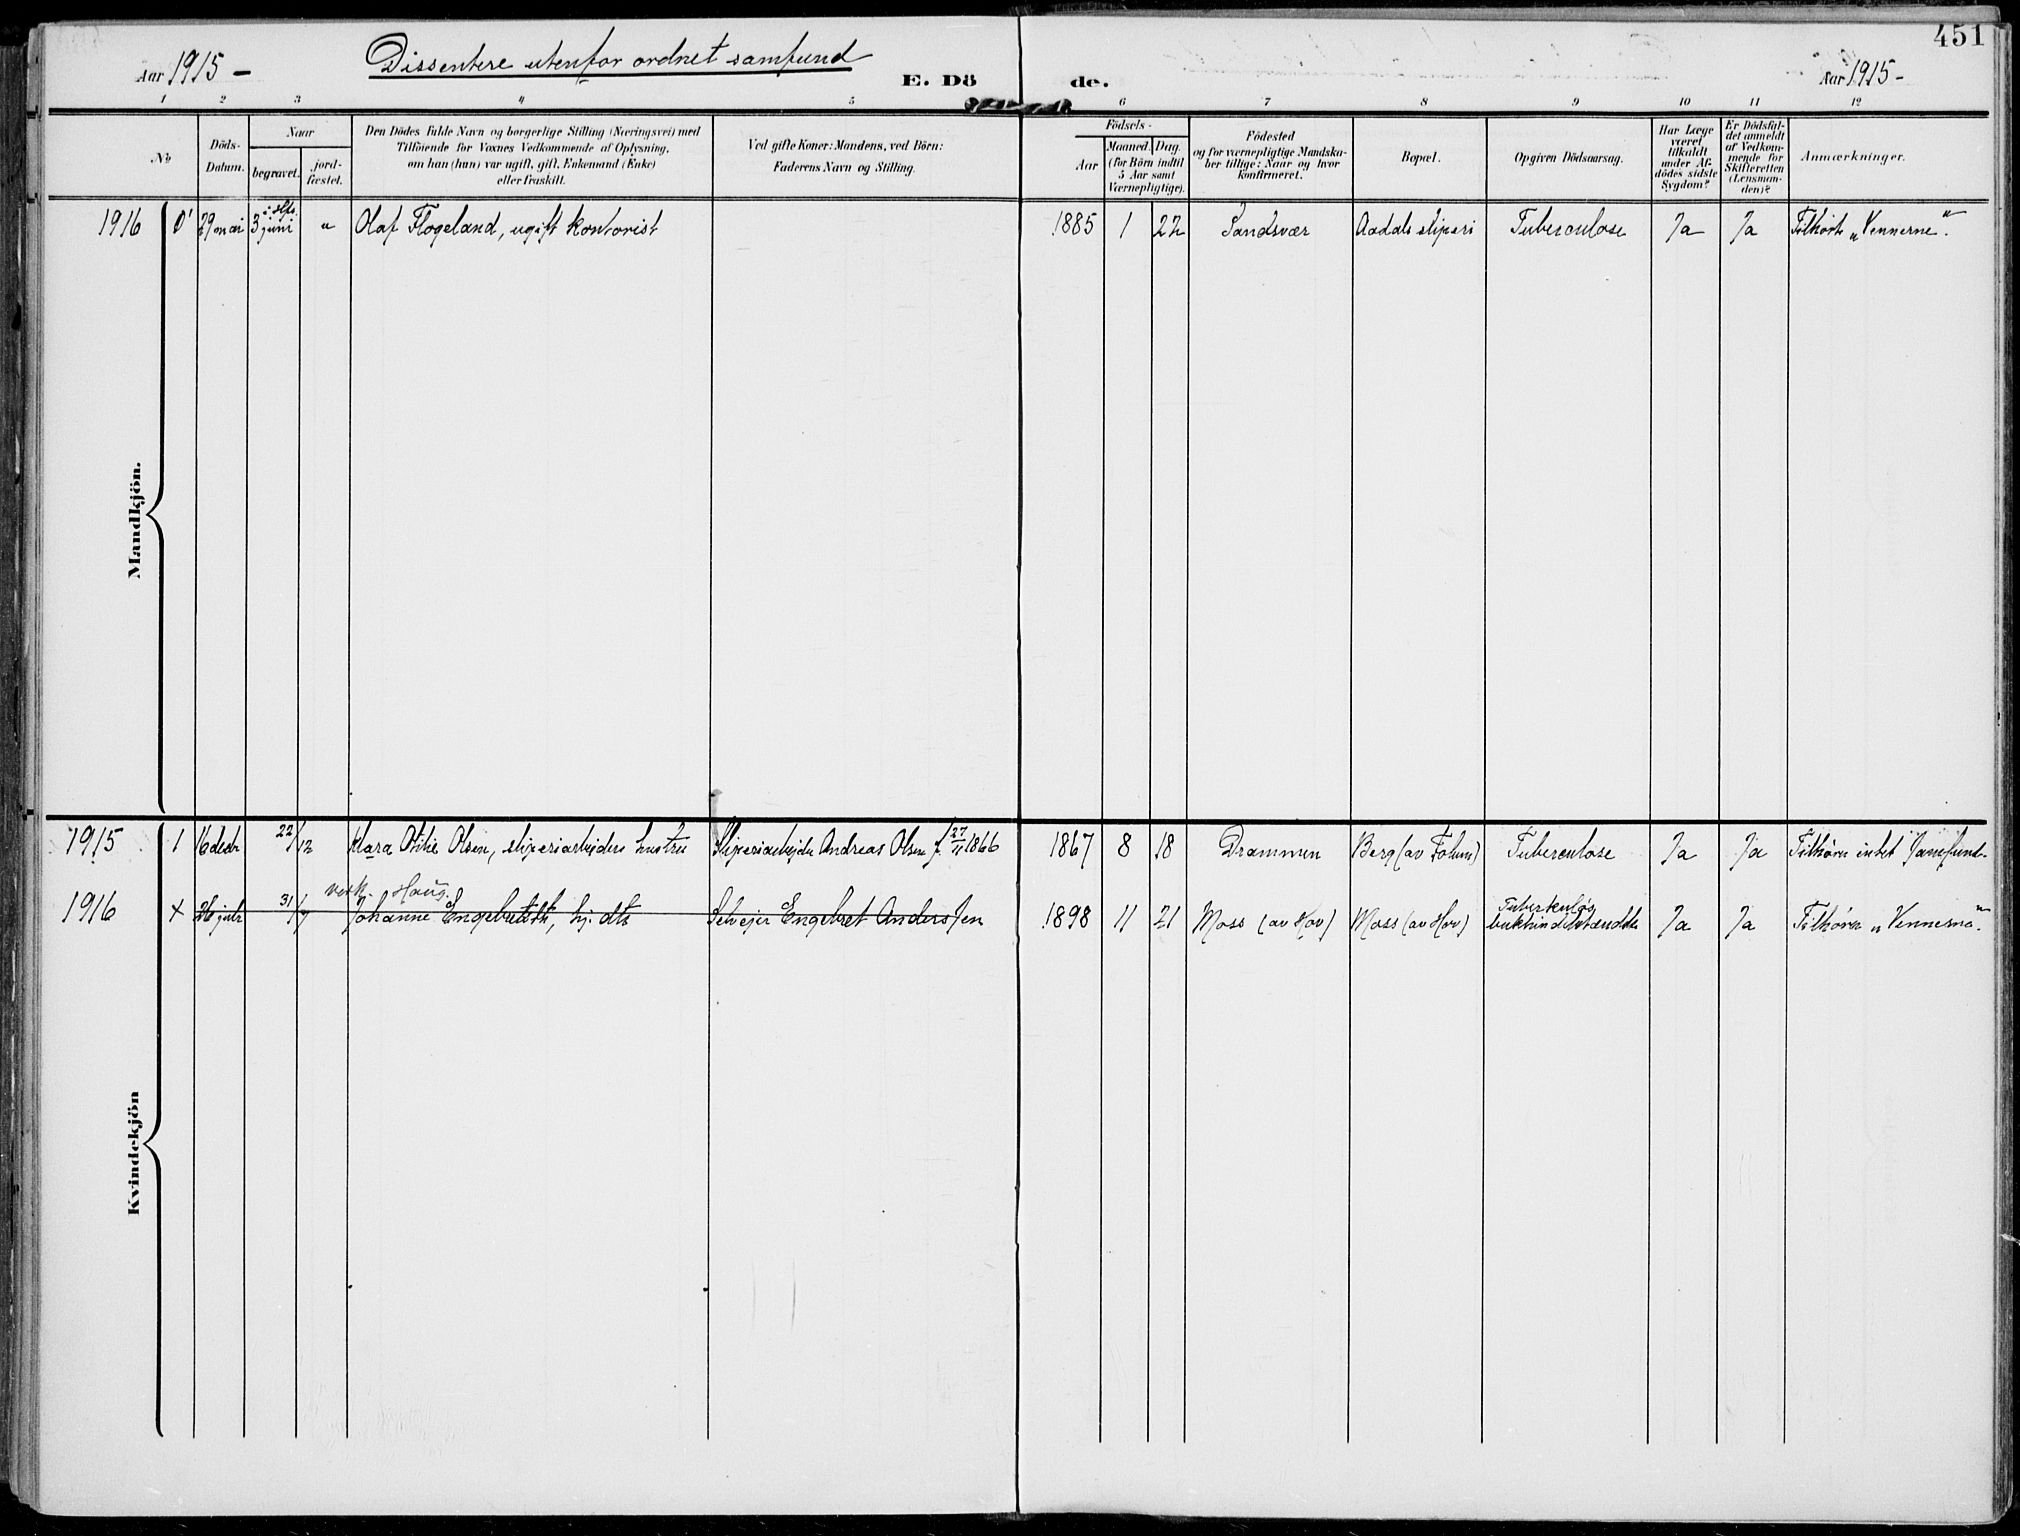 451
Aar 1915 -
Dissentere utenfor ordnet samfund
E. Dö
de.
Aar 1915 -
1 2 3 4 5 6 7 8 9 10 11 12
No
Döds-
Datum.
Naar
begravet.
jord-
fæstet.
Den Dödes fulde Navn og borgerlige Stilling (Næringsvei) med
Tilföiende for Voxnes Vedkommende af Oplysning,
om han (hun) var ugift, gift, Enkemand (Enke)
eller fraskilt.
Ved gifte Koner: Mandens, ved Börn:
Faderens Navn og Stilling.
Födsels-
Aar
Maaned. Dag.
(for Börn indtil
5 Aar samt
Værnepligtige).
Födested
og for værnepligtige Mandska-
ber tillige: Naar og hvor
konfirmeret.
Bopæl.
Opgiven Dödsaarsag.
Har Læge
været
tilkaldt
under Af-
dödes sidste
Sygdom?
Er Dödsfal-
det anmeldt
af Vedkom-
mende for
Skifteretten
(Lensman-
den)?
Anmærkninger.
Mandkjön.
1916 29 mai 3 juni " Olaf Flogeland, ugift kontorist 1885 1 22 Sandsvær Aadals sliperi Tuberculose Ja Ja Tilhørte "Vennerne".
Kvindekjön
1915 1 16 decbr 22/12 Klara Otilie Olsen, sliperiarbeiders hustru Sliperiarbeider Andreas Olsen f. 27/11 1866 1867 8 18 Drammen Berg (av Folum) Tuberculose Ja Ja Tilhører intet Samfund.
verk. Haug.
1916 x 26 juli 31/7 Johanne Engebretsdtr, hj. dtr Selveier Engebret Anderssen 1898 11 21 Moss (av Hov) Moss (av Hov) Tuberkuløs bukhindebetændelse Ja Ja Tilhører "Vennerne".